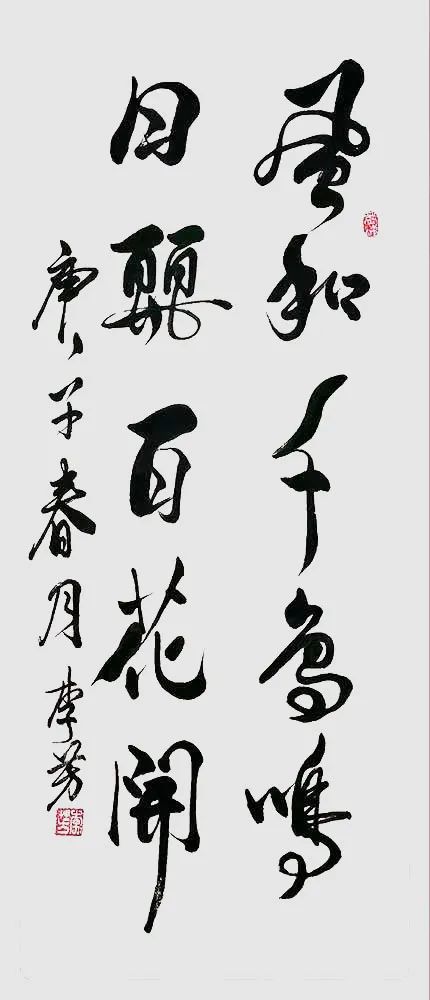 風和千鳥鳴
日麗百花開
庚子春月李芳